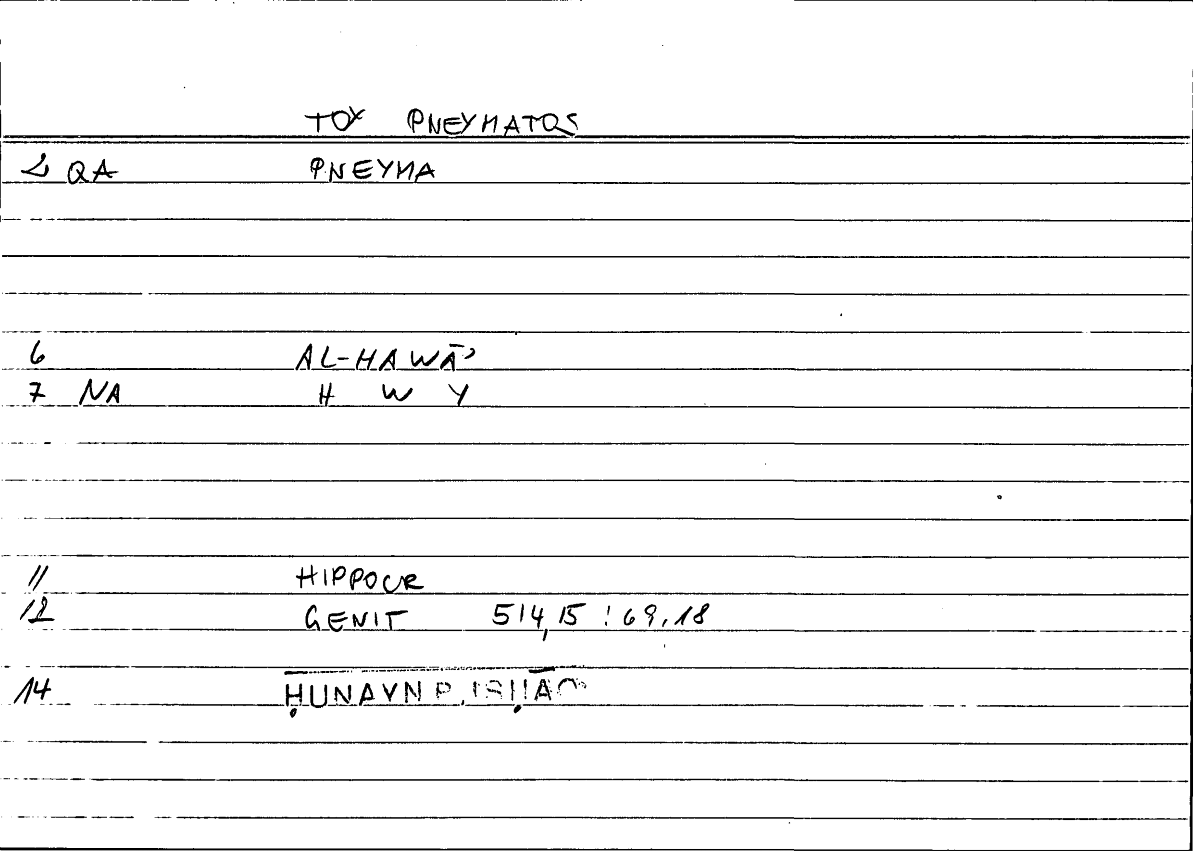 TOY PNEYMATOS
2 QA PNEYMA
6 AL-HAWĀʾ
7 NA H W Y
11 HIPPOCR
12 GENIT 514,15 : 69,18
14 ḤUNAYN B. ISḤĀQ